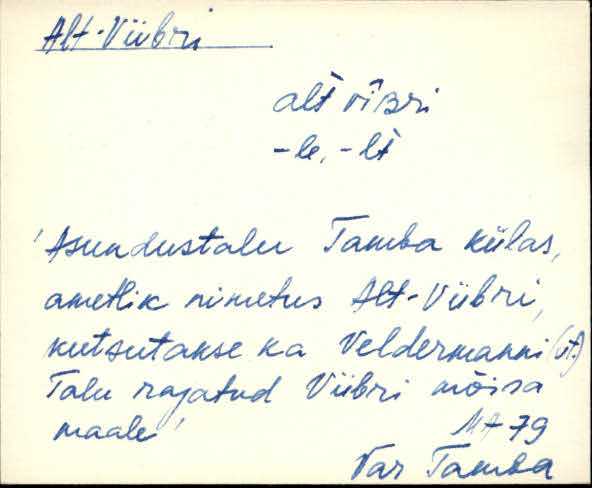 Alt-Viibri
al̀t vîʙri
-le, -l̀t
'Asundustalu Tamba külas,
ametlik nimetus Alt-Viibri,
kutsutakse ka Veldermanni (vt.)
Talu rajatud Viibri mõisa
maale'
MA 79
Var Tamba